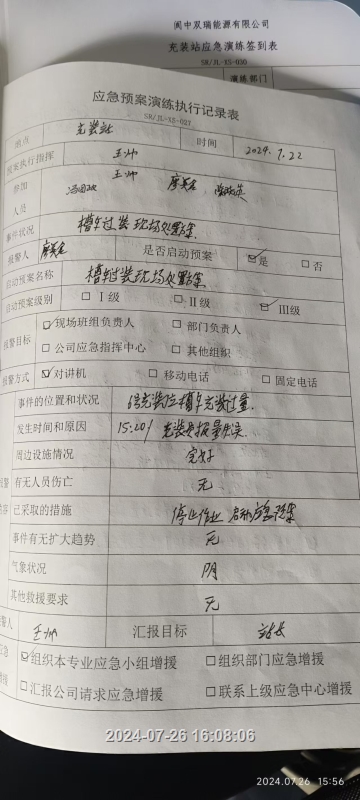 阆中双瑞能源有限公司
充装站应急演练签到表
SR/JL-XS-030
演练部门
应急预案演练执行记录表
SR/JL-XS-027
地点 充装站 时间 2024.7.22
预案执行指挥 王帅
参加 王帅
人员
事件状况 槽车过装现场处置方案
报警人 是否启动预案 ☑是 □否
启动预案名称 槽车过装现场处置方案
启动预案级别 □Ⅰ级 □Ⅱ级 ☑Ⅲ级
报警目标 ☑现场班组负责人 □部门负责人
□公司应急指挥中心 □其他组织
报警方式 ☑对讲机 □移动电话 □固定电话
事件的位置和状况 6号充装位槽车充装过量
发生时间和原因 15:20/ 充装
周边设施情况 完好
有无人员伤亡 无
已采取的措施 停止作业 启动应急预案
事件有无扩大趋势 无
气象状况 阴
其他救援要求 无
王帅 汇报目标 站长
☑组织本专业应急小组增援 □组织部门应急增援
□汇报公司请求应急增援 □联系上级应急中心增援
2024-07-26 16:08:06
2024.07.26 15:56